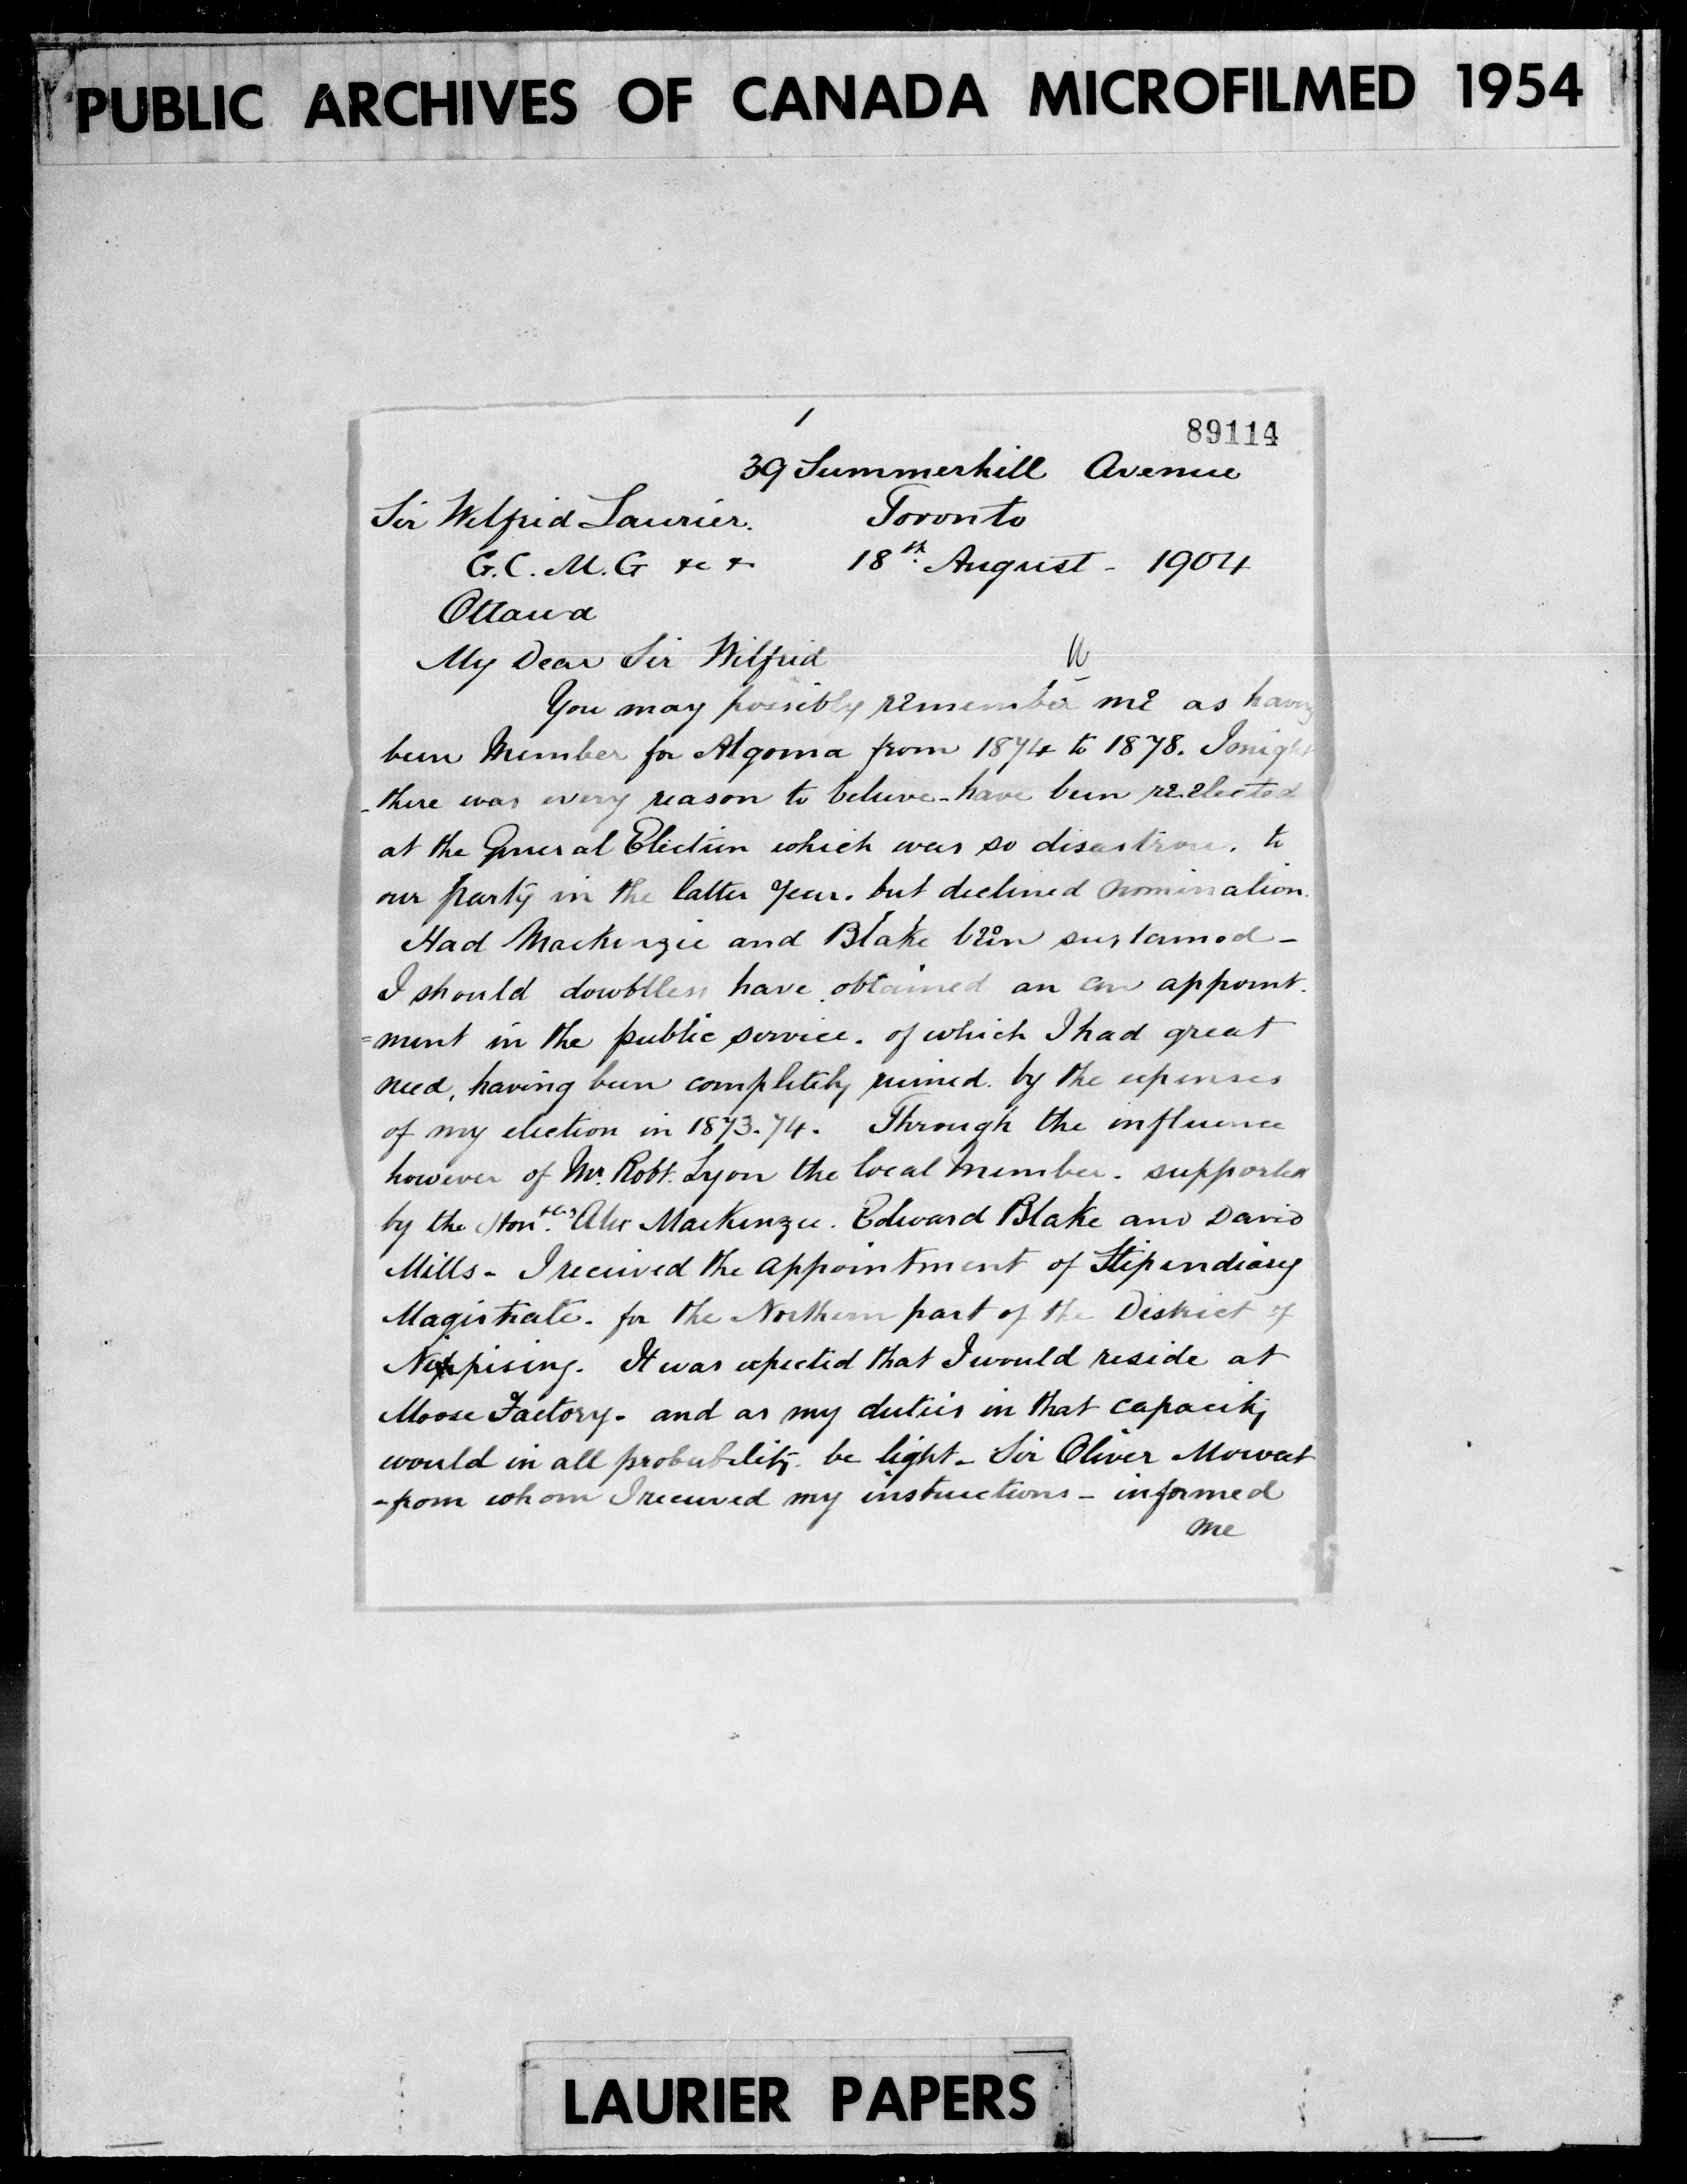 PUBLIC ARCHIVES OF CANADA MICROFILMED 1954
1
89114
39 Summerhill Avenue
Sir Wilfrid Laurier. Toronto
G.C.M.G &c & 18th August - 1904
Ottawa
My Dear Sir Wilfrid
You may possibly remember me as having
been Member for Algoma from 1874 to 1878. I might
- there was every reason to believe - have been reelected
at the General Election which was so disastrous. to
our party in the latter year. but declined nomination.
Had Mackenzie and Blake been sustained -
I should doubtless have obtained an an appoint.
=ment in the public service. of which I had great
need, having been completely ruined. by the expenses
of my election in 1873.74. Through the influence
however of Mr. Robt. Lyon the local Member. supported
by the Honbles Alex MacKenzie. Edward Blake and David
Mills - I received the appointment of Stipendiary
Magistrate. for the Northern part of the District of
Nippising. It was expected that I would reside at
Moose Factory - and as my duties in that capacity
would in all probability be light - Sir Oliver Mowat
- from whom I received my instructions - informed
me
LAURIER PAPERS